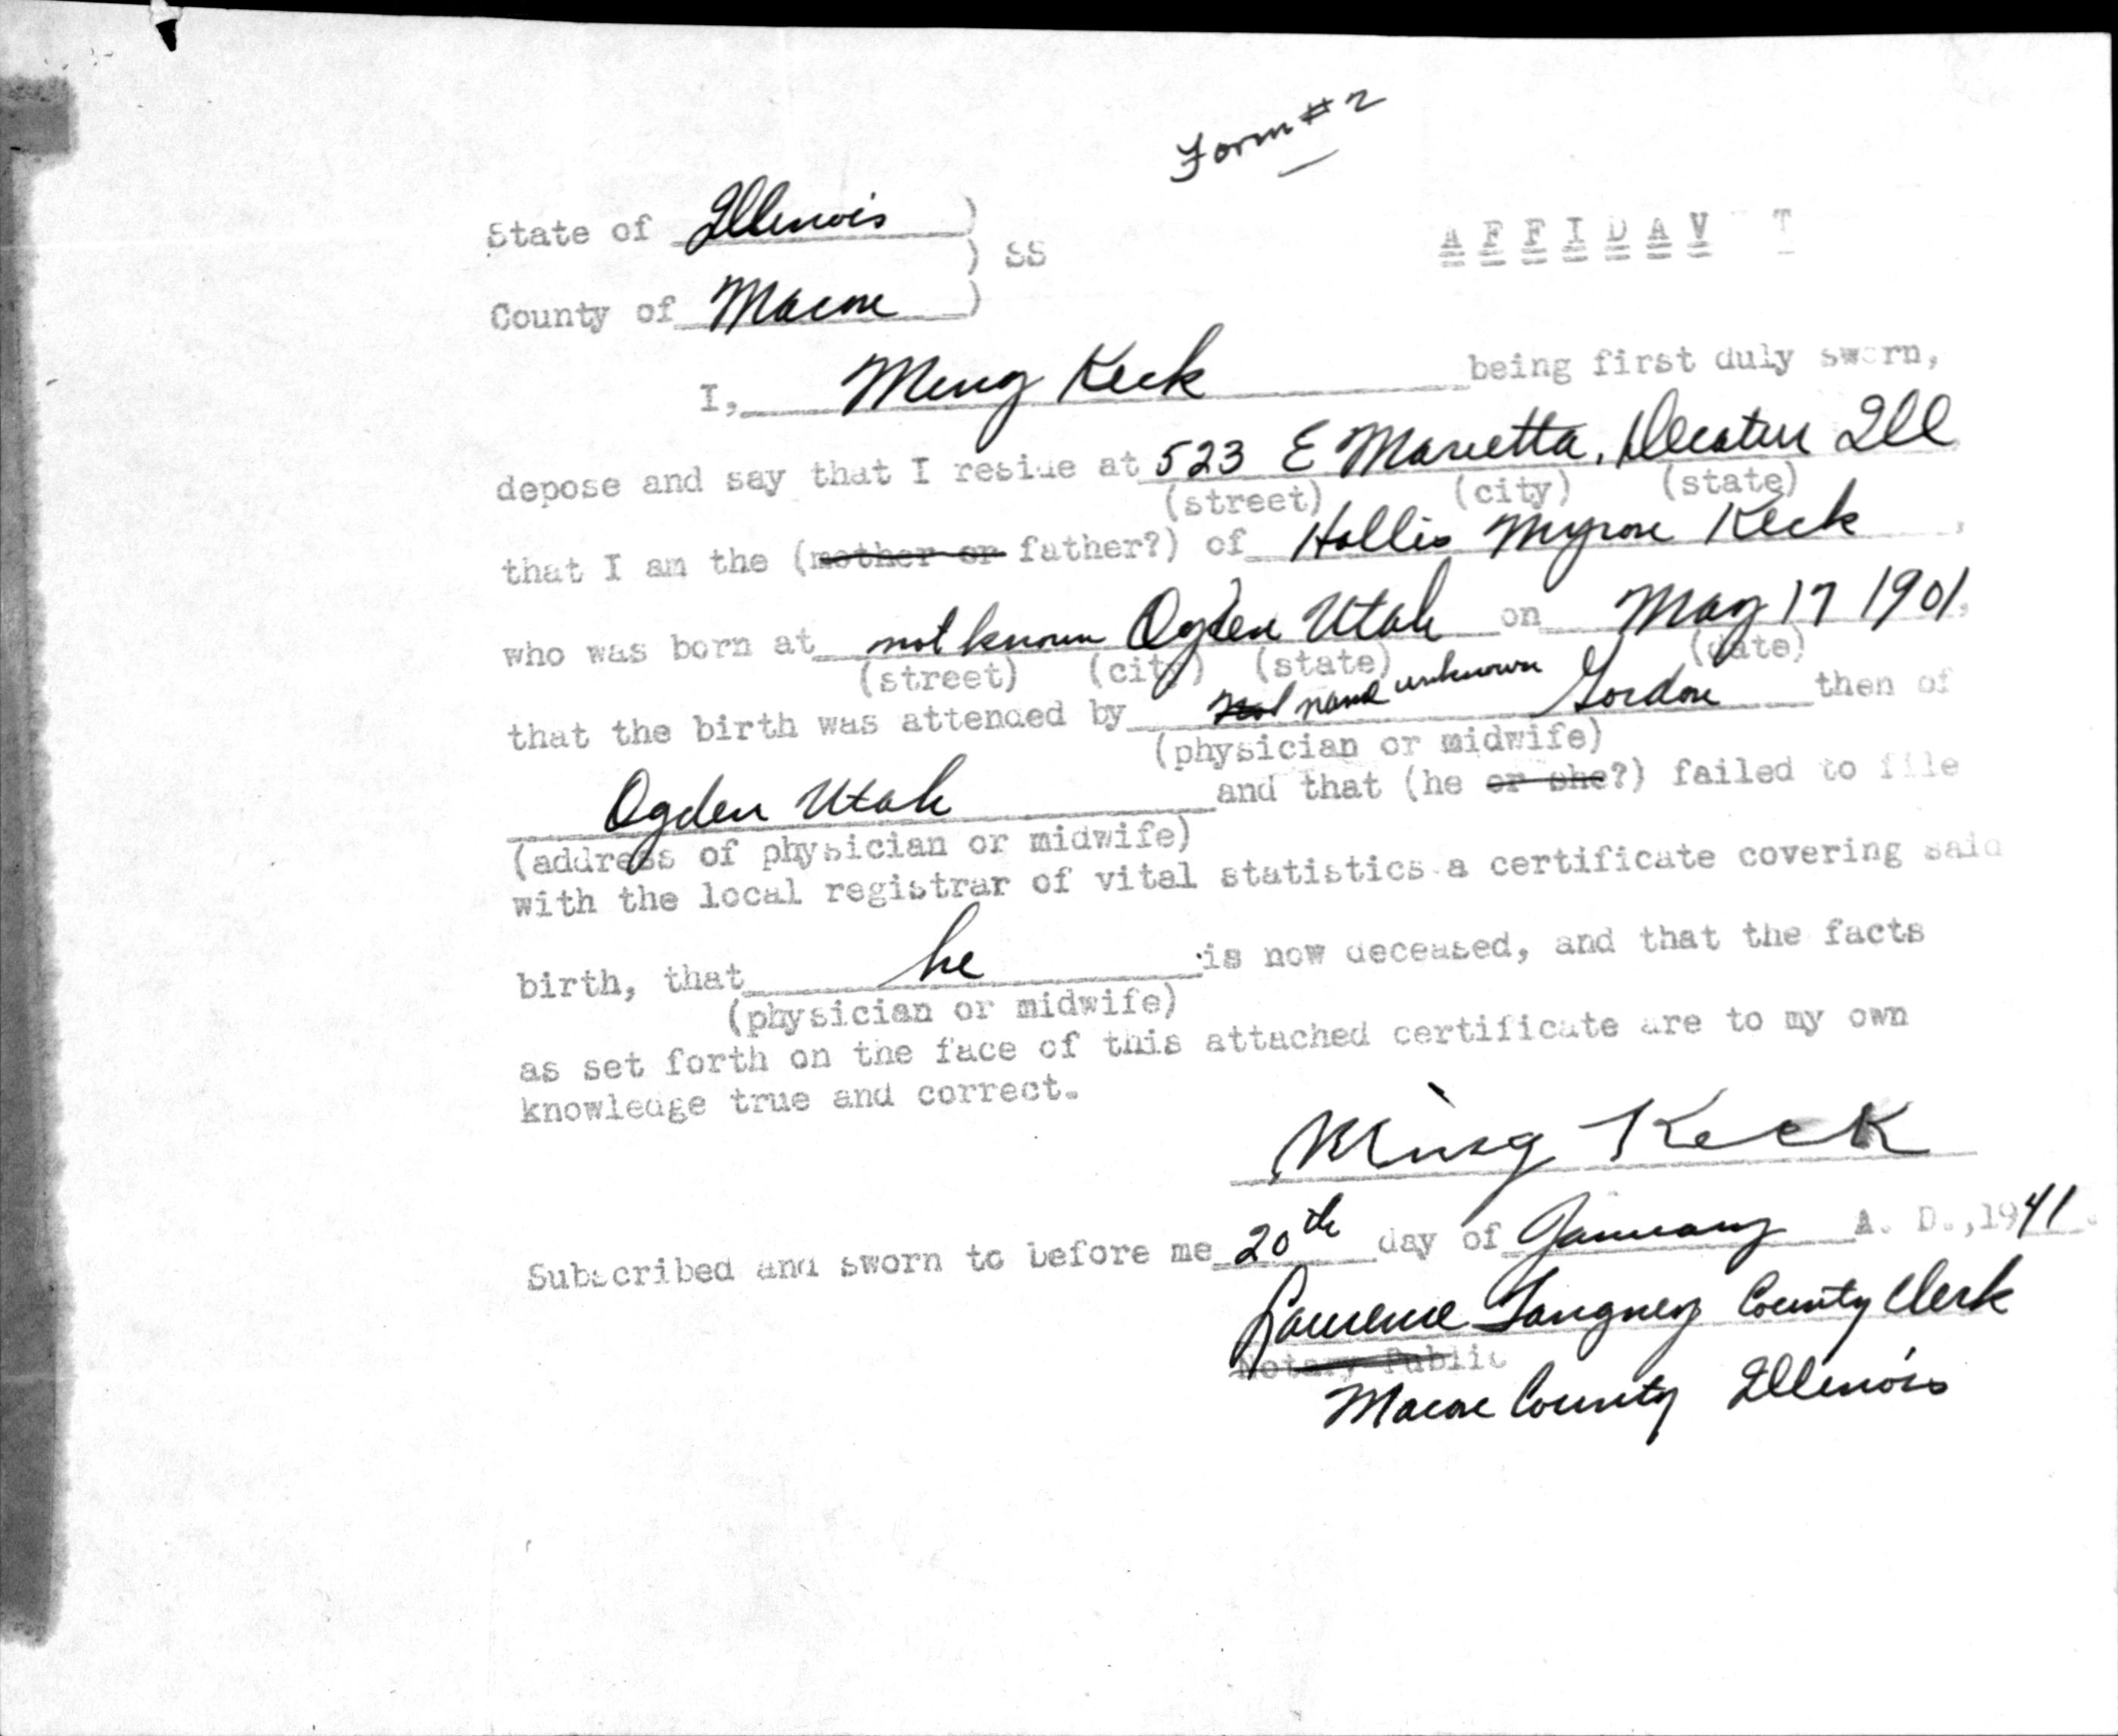 Form #2
State of Illinois )
) SS
A F F I D A V T
County of Macon )
I, Ming Keck being first duly sworn,
depose and say that I reside at 523 E Marietta, Decatur Ill
(street) (city) (state)
that I am the (mother or father?) of Hollis Myron Keck,
who was born at not known Ogden Utah on May 17 1901,
(street) (city) (state) (date)
that the birth was attended by name unknown Gordon then of
(physician or midwife)
Ogden Utah and that (he or she?) failed to file
(address of physician or midwife)
with the local registrar of vital statistics a certificate covering said
birth, that he is now deceased, and that the facts
(physician or midwife)
as set forth on the face of this attached certificate are to my own
knowledge true and correct.
Ming Keck
Subscribed and sworn to before me 20th day of January A. D., 1941.
Lawrence Tangney County Clerk
Notary Public
Macon County Illinois